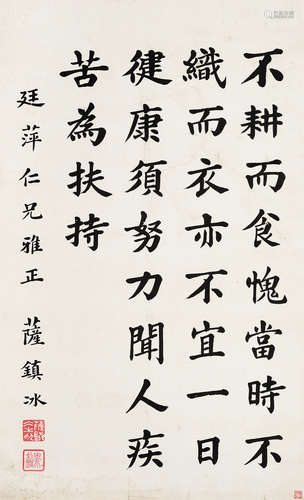 不耕而食愧當時不
織而衣亦不宜一日
健康須努力聞人疾
苦為扶持
廷萍仁兄雅正 薩鎮冰